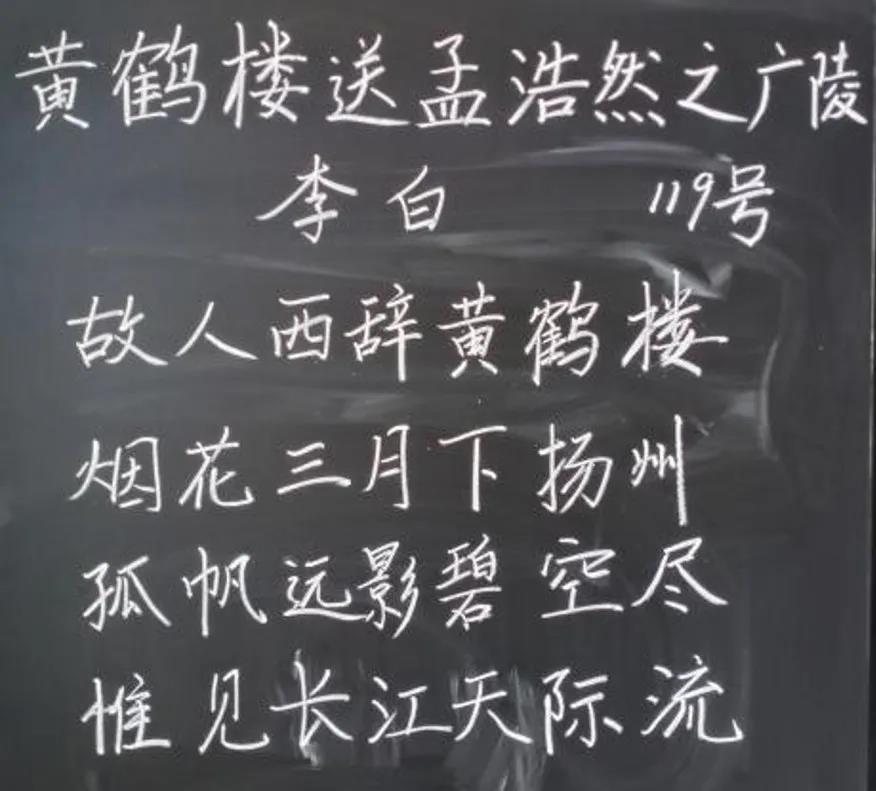 黄鹤楼送孟浩然之广陵
李白 119号
故人西辞黄鹤楼
烟花三月下扬州
孤帆远影碧空尽
惟见长江天际流